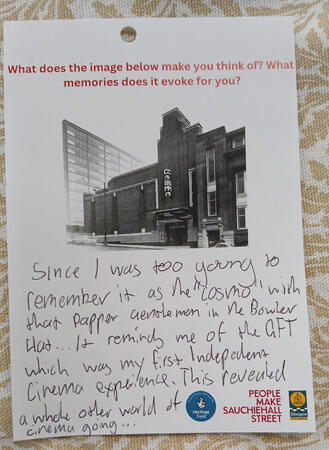 What does the image below make you think of? What
memories does it evoke for you?
COSMO
Since I was too young to
remember it as the "Cosmo" with
that Dapper Gentleman in the Bowler
Hat... It reminds me of the GFT
which was my first Indepedent
Cinema experience. This revealed
a whole other world of
cinema going...
Heritage
Fund
PEOPLE
MAKE
SAUCHIEHALL
STREET
Glasgow